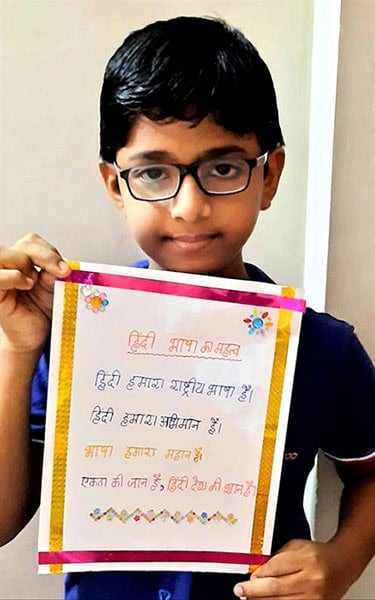 हिंदी भाषा का महत्व
हिंदी हमारा राष्ट्रीय भाषा है।
हिंदी हमारा अभिमान हैं।
भाषा हमारा महान है।
एकता की जान हैं, हिंदी देश की शान है।